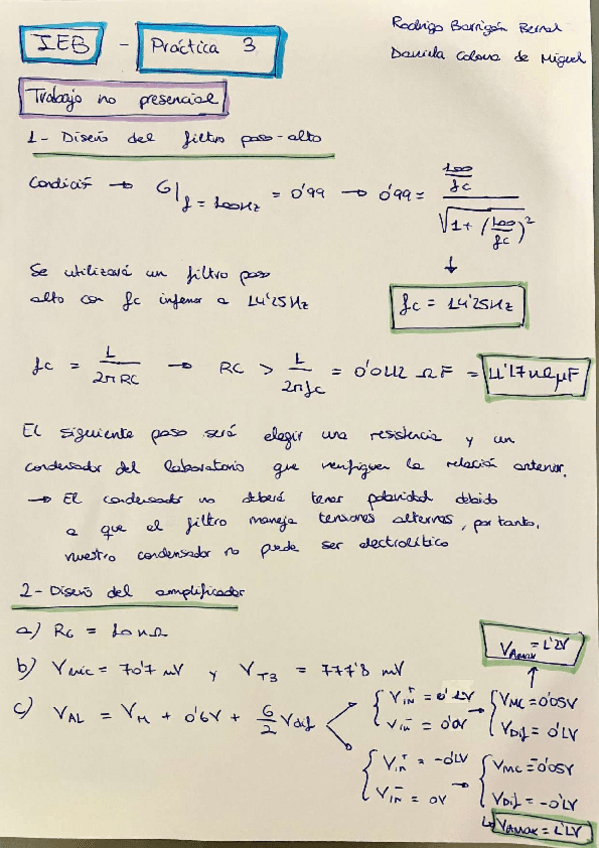 Rodrigo Barrigón Bernal
IEB - Práctica 3
Daniela Colona de Miguel
Trabajo no presencial
1- Diseño del filtro paso-alto
Condición → G|f=100Hz = 0'99 → 0'99 = (100/fc) / √(1+(100/fc)²)
↓
Se utilizará un filtro paso
alto con fc inferior a 14'25Hz
fc = 14'25Hz
fc = 1/2πRC → RC > 1/2πfc = 0'0112 ΩF = 11'17kΩμF
El siguiente paso será elegir una resistencia y un
condensador del laboratorio que verifiquen la relación anterior.
→ El condensador no deberá tener polaridad debido
a que el filtro maneja tensiones alternas, por tanto,
nuestro condensador no puede ser electrolítico
2- Diseño del amplificador
a) RG = 10kΩ
VAmax = 1'2V
b) Vmic = 70'7 mV y VT3 = 777'8 mV
c) VAL = VM + 0'6V + G/2 Vdif
{ VIN+ = 0'1V → { VMC = 0'05V
VIN- = 0'0V VDif = 0'1V
{ Vin+ = -0'1V → { VMC = -0'05V
Vin- = 0V VDif = -0'1V
↳ VAmax = 1'1V